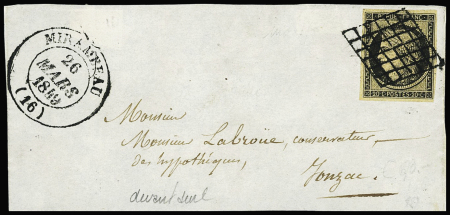 MIRAMBEAU
26
MARS
1849
(16)
REPUB. FRANC.
20 C. POSTES 20 C.
Monsieur
Monsieur Labroüe, conservateur
des hypothèques,
Jonzac.
devant seul